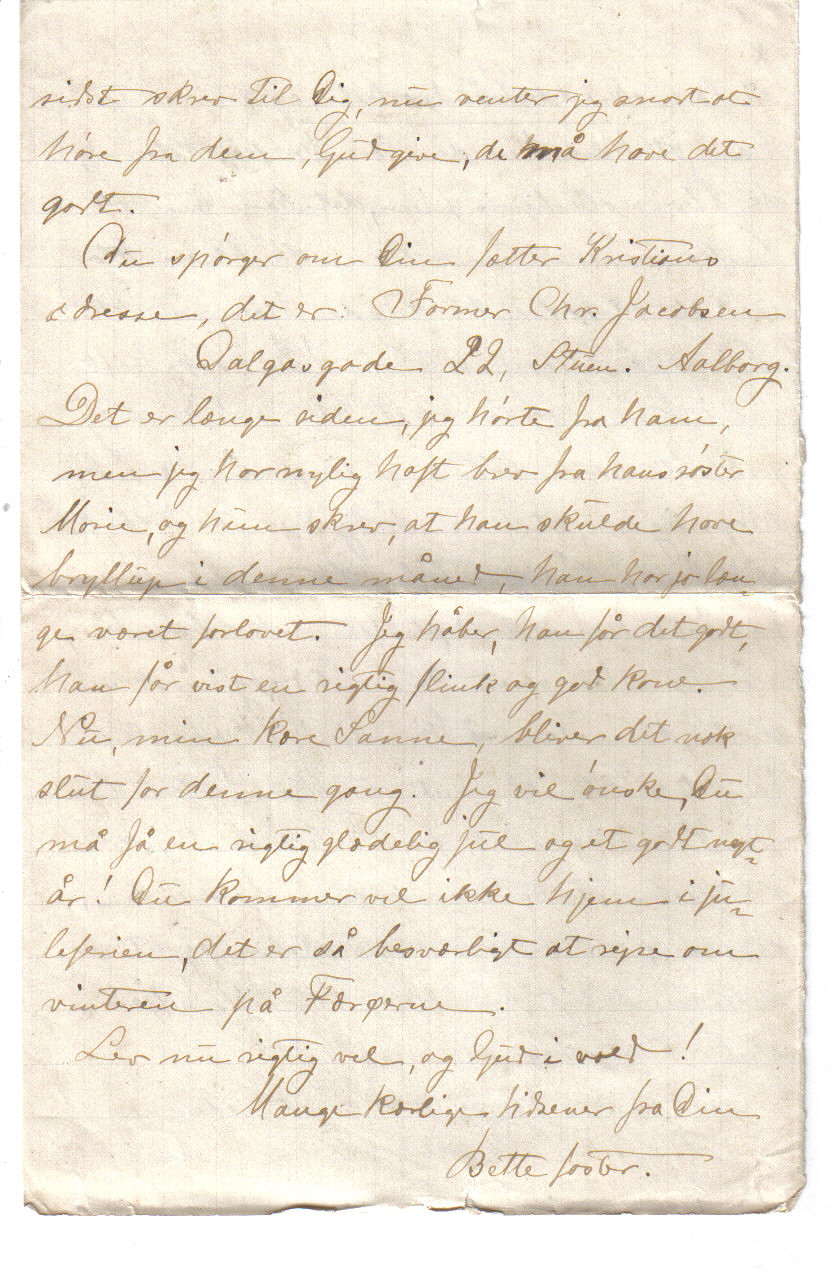 sidst skrev til Dig, nu venter jeg snart at
høre fra dem, Gud give, de må have det
godt.
Du spørger om Din fætter Kristians
adresse, det er: Former Chr. Jacobsen
Dalgasgade 22, Stuen. Aalborg.
Det er længe siden, jeg hørte fra ham,
men jeg har nylig haft brev fra hans søster
Marie, og hun skrev, at han skulde have
bryllup i denne måned, han har jo læn-
ge været forlovet. Jeg håber, han får det godt,
han får vist en rigtig flink og god kone.
Nu, min kære Sanne, bliver det nok
slut for denne gang. Jeg vil ønske, Du
må få en rigtig glædelig jul og et godt nyt-
år! Du kommer vel ikke hjem i ju-
leferien, det er så besværligt at rejse om
vinteren på Færøerne.
Lev nu rigtig vel, og Gud i vold!
Mange kærlige hilsener fra Din
Bette faster.